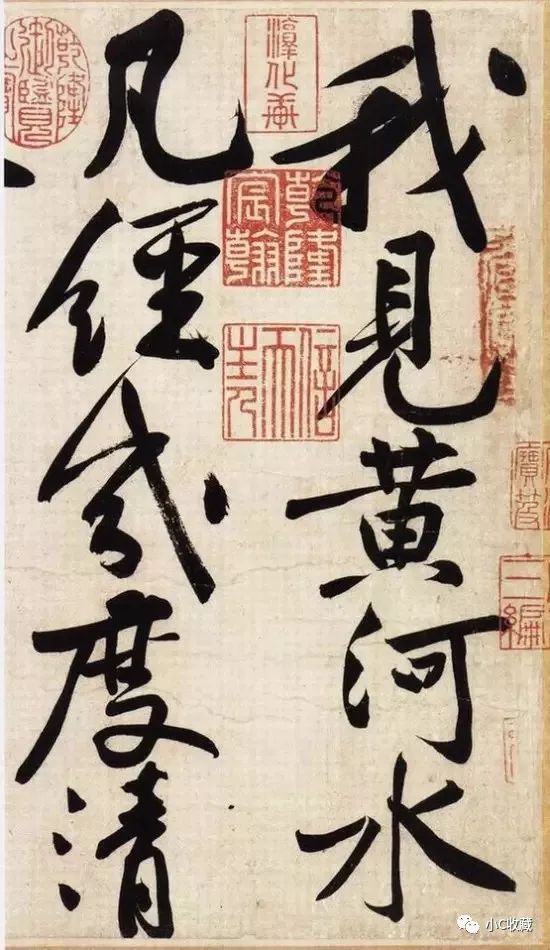 我見黄河水
凡經幾度清
淳化軒
乾隆宸翰
信天主人
乾隆御覽之寶
寶笈
三編
小C收藏